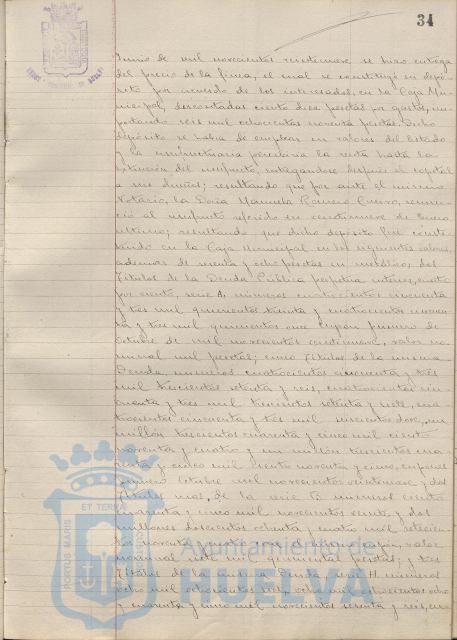 34
Junio de mil novecientos veintinueve se hizo entrega
del precio de la finca, el cual se constituyó en depó-
sito por acuerdo de los interesados, en la Caja Mu-
nicipal, descontadas ciento diez pesetas por gastos, im-
portando seis mil ochocientas noventa pesetas. Dicho
depósito se había de emplear en valores del Estado
y la usufructuaria percibiría la renta hasta la
extinción del usufructo, entregándose después el capital
a sus dueños; resultando que por ante el mismo
Notario, la Doña Manuela Romero Cuervo, renun-
ció al usufructo referido en veintinueve de Enero
último; resultando que dicho depósito fué consti-
tuido en la Caja Municipal en los siguientes valores,
además de y ocho pesetas en metálico; dos
Títulos de la Deuda Pública perpetua interior, cuatro
por ciento, serie A, números cuatrocientos cincuenta
y tres mil quinientos treinta y cuatrocientos cincuen-
ta y tres mil quinientos once cupón primero de
Octubre de mil novecientos veintinueve, valor no-
minal mil pesetas; cinco Títulos de la misma
Deuda, números cuatrocientos cincuenta y tres
mil trescientos setenta y seis, cuatrocientos cin-
cuenta y tres mil trescientos setenta y siete, cua-
trocientos cincuenta y tres mil doce, un
millón trescientos cuarenta y cinco mil ciento
noventa y cuatro y un millón trescientos cua-
renta y cinco mil ciento noventa y cinco, cupones
primero Octubre mil novecientos veintinueve, y dos
Títulos mas, de la serie B números ciento
cuarenta y cinco mil novecientos veinte, y dos
millones doscientos ochenta y cuatro mil setecien-
tos noventa y cuatro, con el mismo cupón, valor
nominal siete mil quinientas pesetas; y tres
Títulos de la misma Deuda, serie H números
ocho mil ochocientos seis, ocho mil ochocientos ocho
y cuarenta y cinco mil novecientos setenta y seis, cu-
PORTUS MARIS
ET TERRÆ
Ayuntamiento de
HUELVA